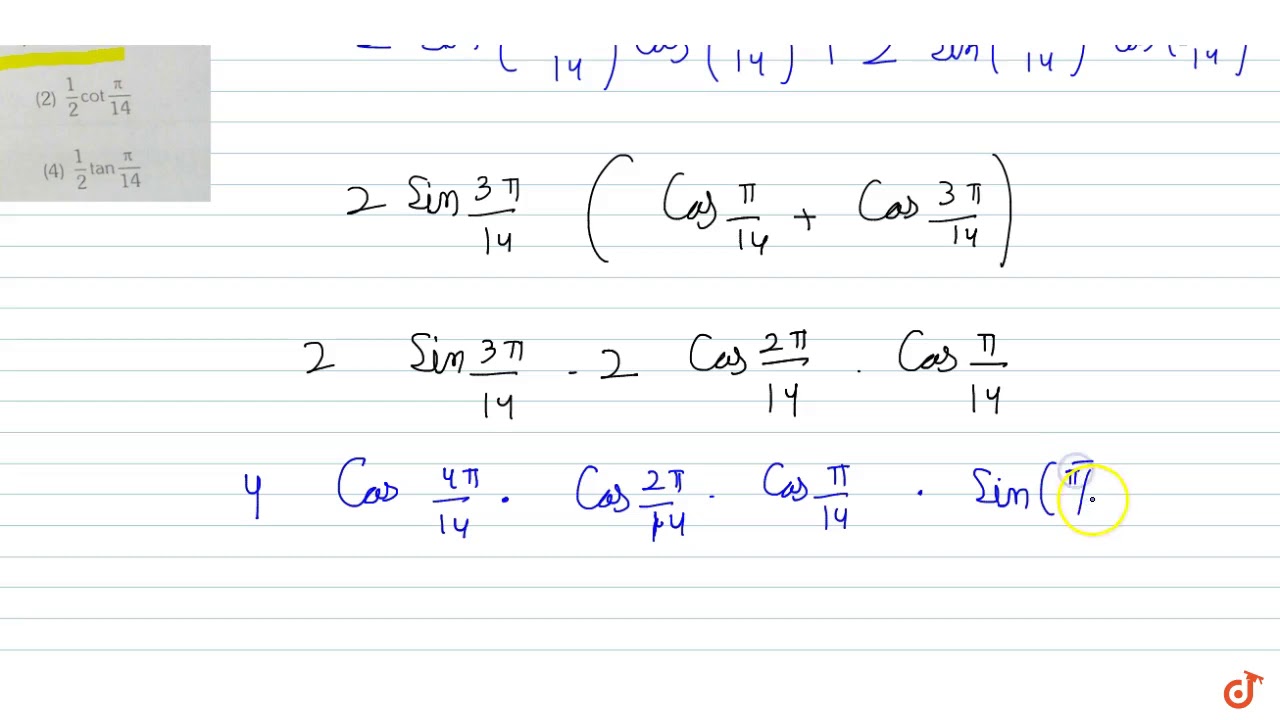 (2) 1/2 cot π/14
(4) 1/2 tan π/14
2 Sin 3π/14 ( Cos π/14 + Cos 3π/14 )
2 Sin 3π/14 . 2 Cos 2π/14 . Cos π/14
4 Cos 4π/14 . Cos 2π/14 . Cos π/14 . Sin (π/